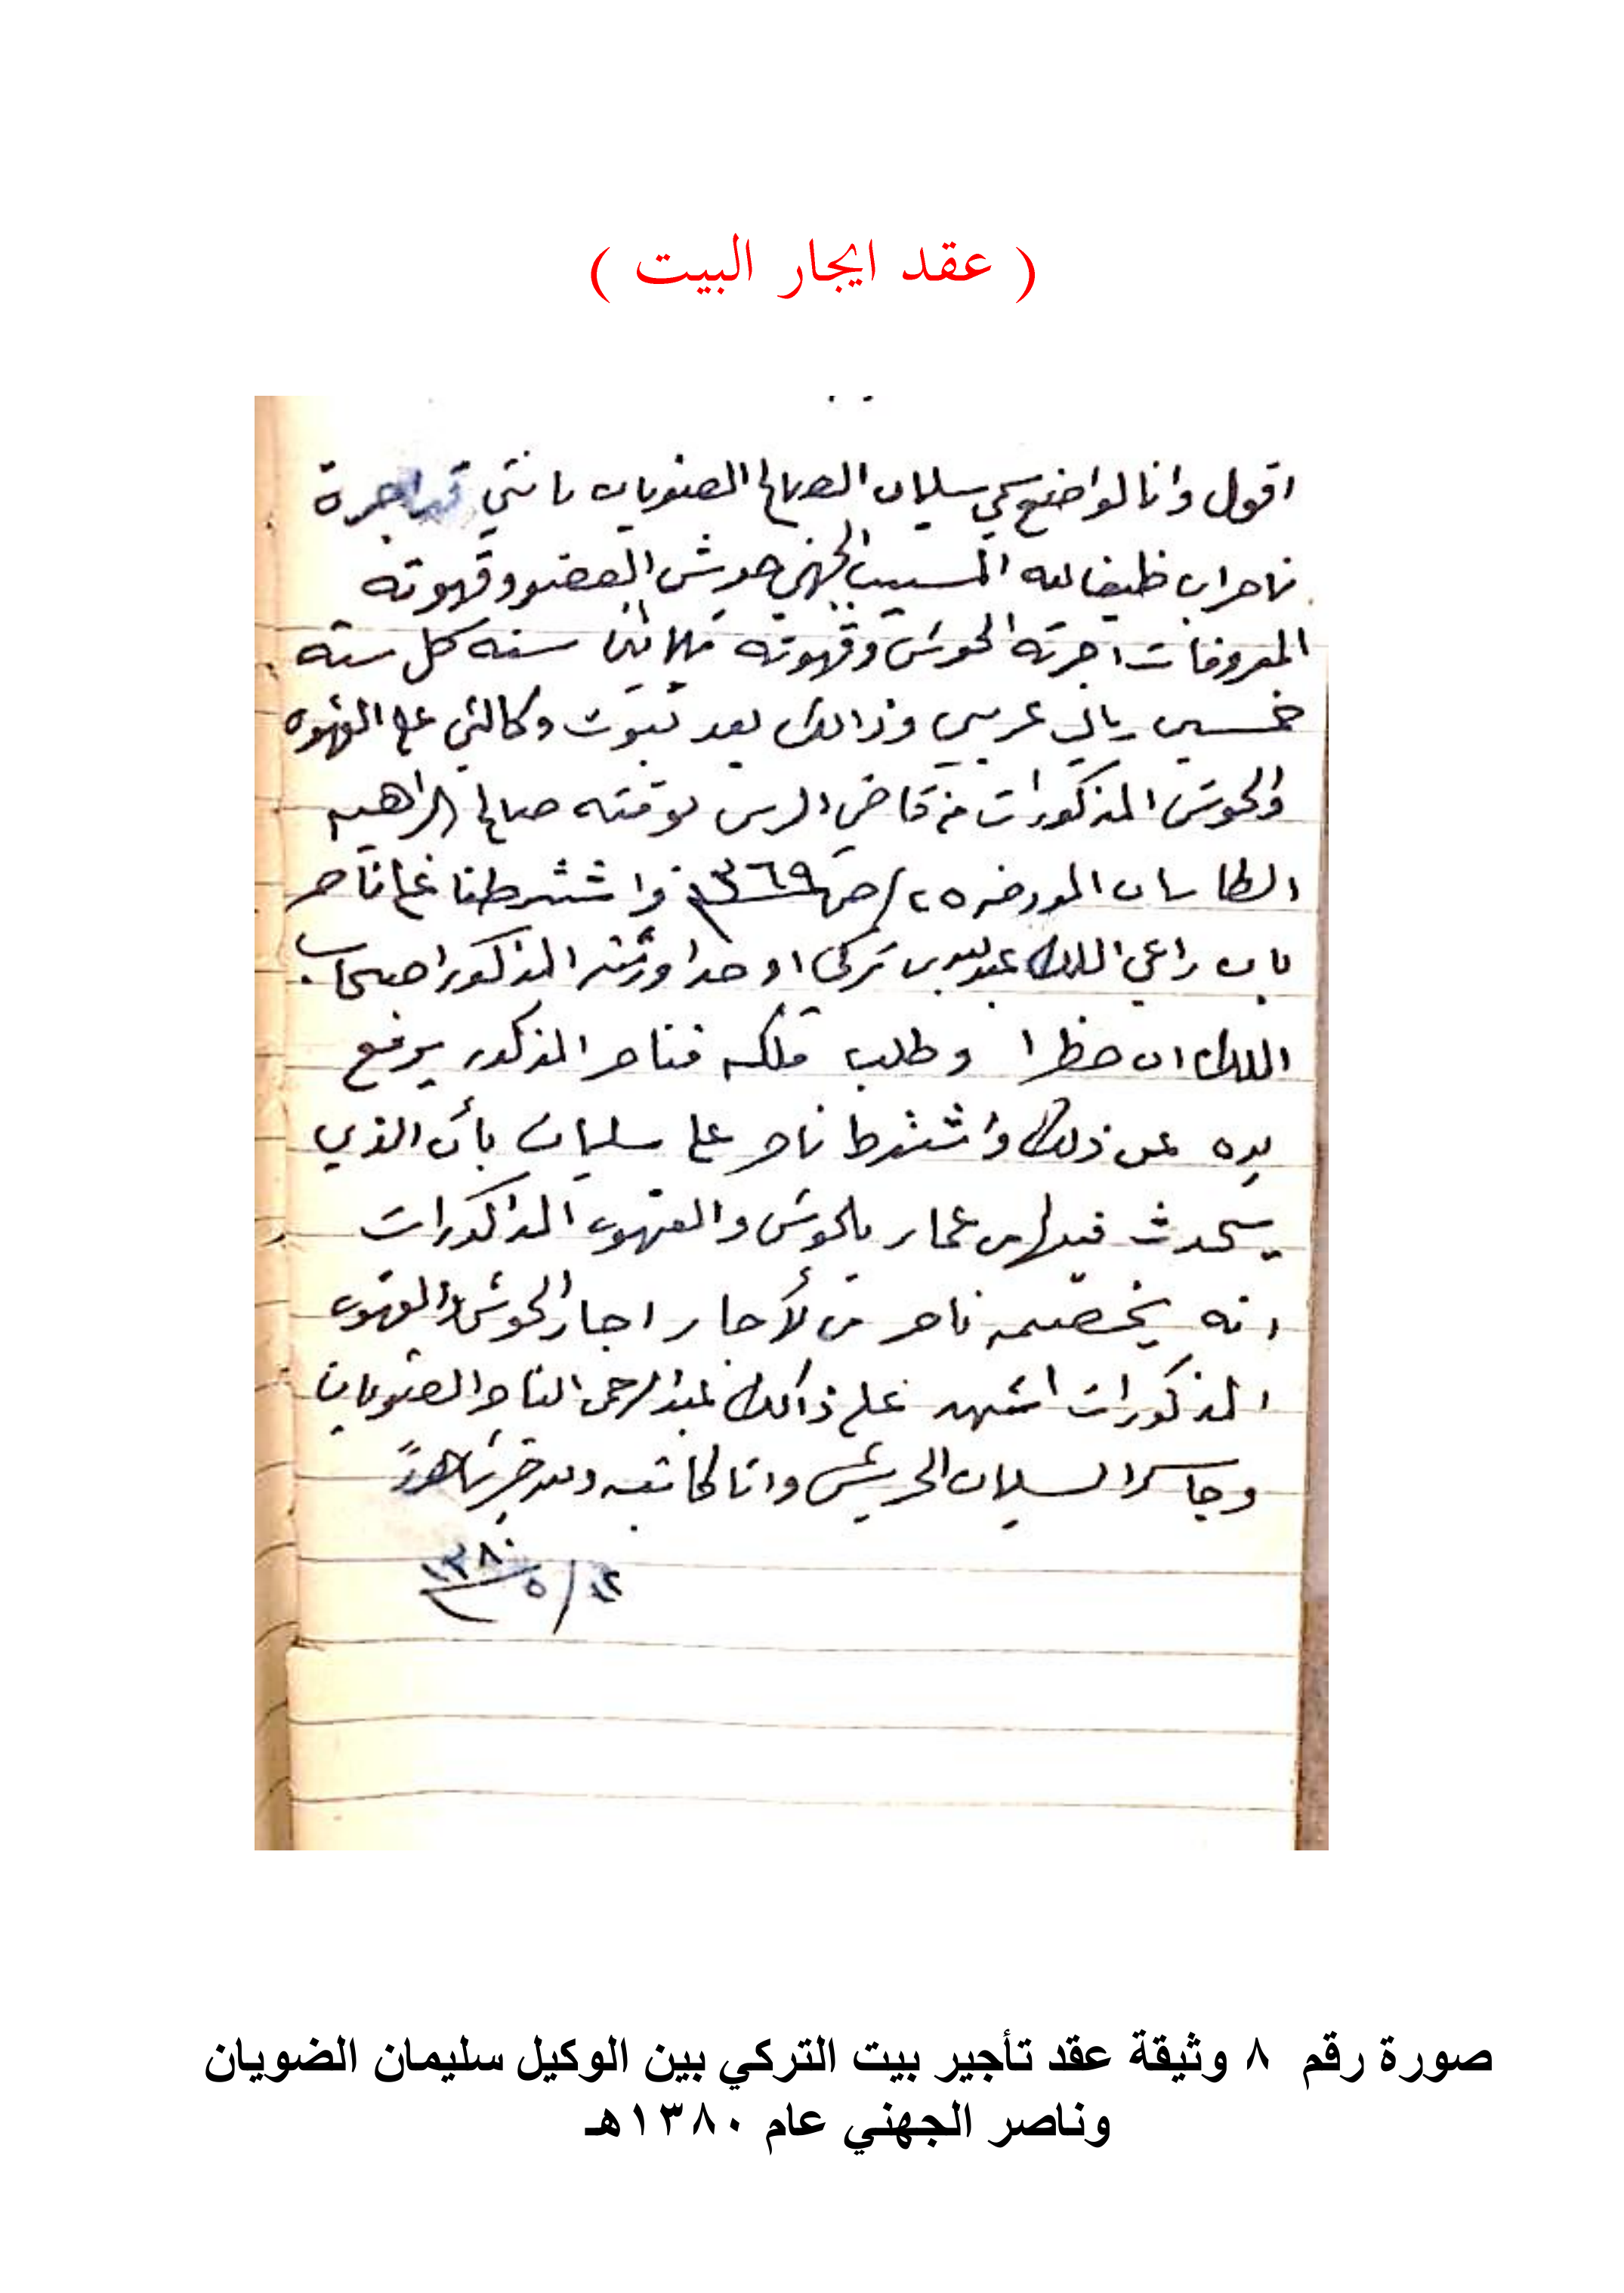 ( عقد ايجار البيت )
اقول وانا لواضع سمي سليمان الصالح الضويان بانني قد اجرة
ناصر ابن ظيف الله المسيب الجهني حوش العضو وقهوته
المعروفات اجرته الحوش وقهوته ثلاثين سنه كل سنه
خمسين ريال عربي وذالك بعد ثبوت وكالتي على القهوه
والحوش المذكورات من قاضي الرس بوقته صالح ابراهيم
الطاسان المورخه ٢٥/ ١٣٦٩ واشترطنا على ناصر
بان راعي الملك عبدالله بن تركي او احد اورثته المذكور اصحاب
الملك ان حظرا وطلب ملكه فناصر المذكور يرفع
يده عن ذلك واشترط ناصر على سليمان بأن الذي
يحدث فيهن عمار بالحوش والقهوه المذاكورات
انه يخصمه ناصر من لأجار اجار الحوش والقهوه
المذكورات اشهد على ذالك عبدالرحمن الناصر الضويان
وجاسر السليمان الحريش وانا كاتبه شاهدً
١٢/٥/١٣٨٠
صورة رقم ٨ وثيقة عقد تأجير بيت التركي بين الوكيل سليمان الضويان
وناصر الجهني عام ١٣٨٠هـ